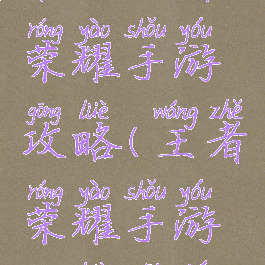 róng yào shǒu yóu
荣耀手游
gōng lüè wáng zhě
攻略(王者
róng yào shǒu yóu
荣耀手游